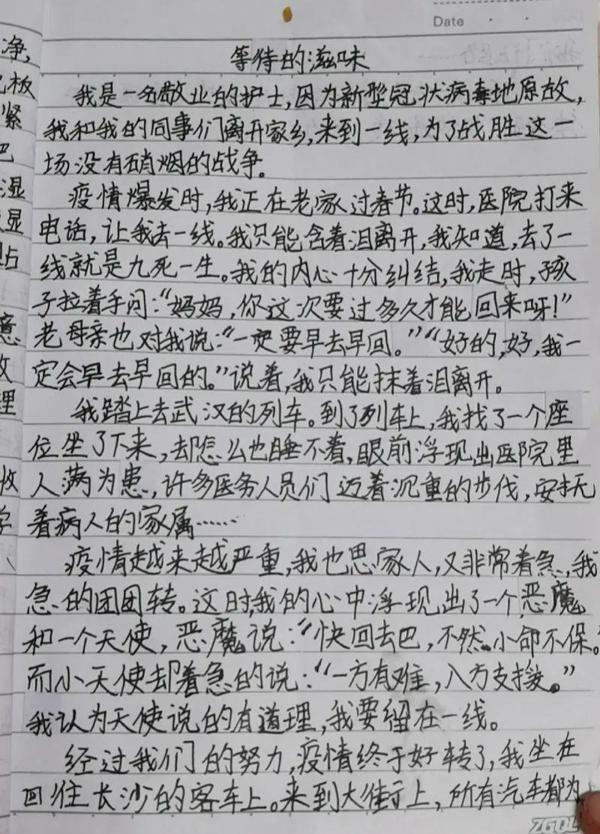 Date
等待的滋味
我是一名敬业的护士,因为新型冠状病毒地原故,
我和我的同事们离开家乡,来到一线,为了战胜这一
场没有硝烟的战争。
疫情爆发时,我正在老家过春节。这时,医院打来
电话,让我去一线。我只能含着泪离开,我知道,去了一
线就是九死一生。我的内心十分纠结,我走时,孩
子拉着手问:“妈妈,你这次要过多久才能回来呀!”
老母亲也对我说:“一定要早去早回。”“好的,好,我一
定会早去早回的。”说着,我只能抹着泪离开。
我踏上去武汉的列车。到了列车上,我找了一个座
位坐了下来,却怎么也睡不着,眼前浮现出医院里
人满为患,许多医务人员们迈着沉重的步伐,安抚
着病人的家属……
疫情越来越严重,我也思家人,又非常着急,我
急的团团转。这时,我的心中浮现出了一个恶魔
和一个天使,恶魔说:“快回去巴,不然小命不保。
而小天使却着急的说:“一方有难,八方支援。”
我认为天使说的有道理,我要留在一线。
经过我们的努力,疫情终于好转了,我坐在
回往长沙的客车上。来到大街上,所有汽车都为
净,
板
紧
巴
湿
显
占
意
理
学